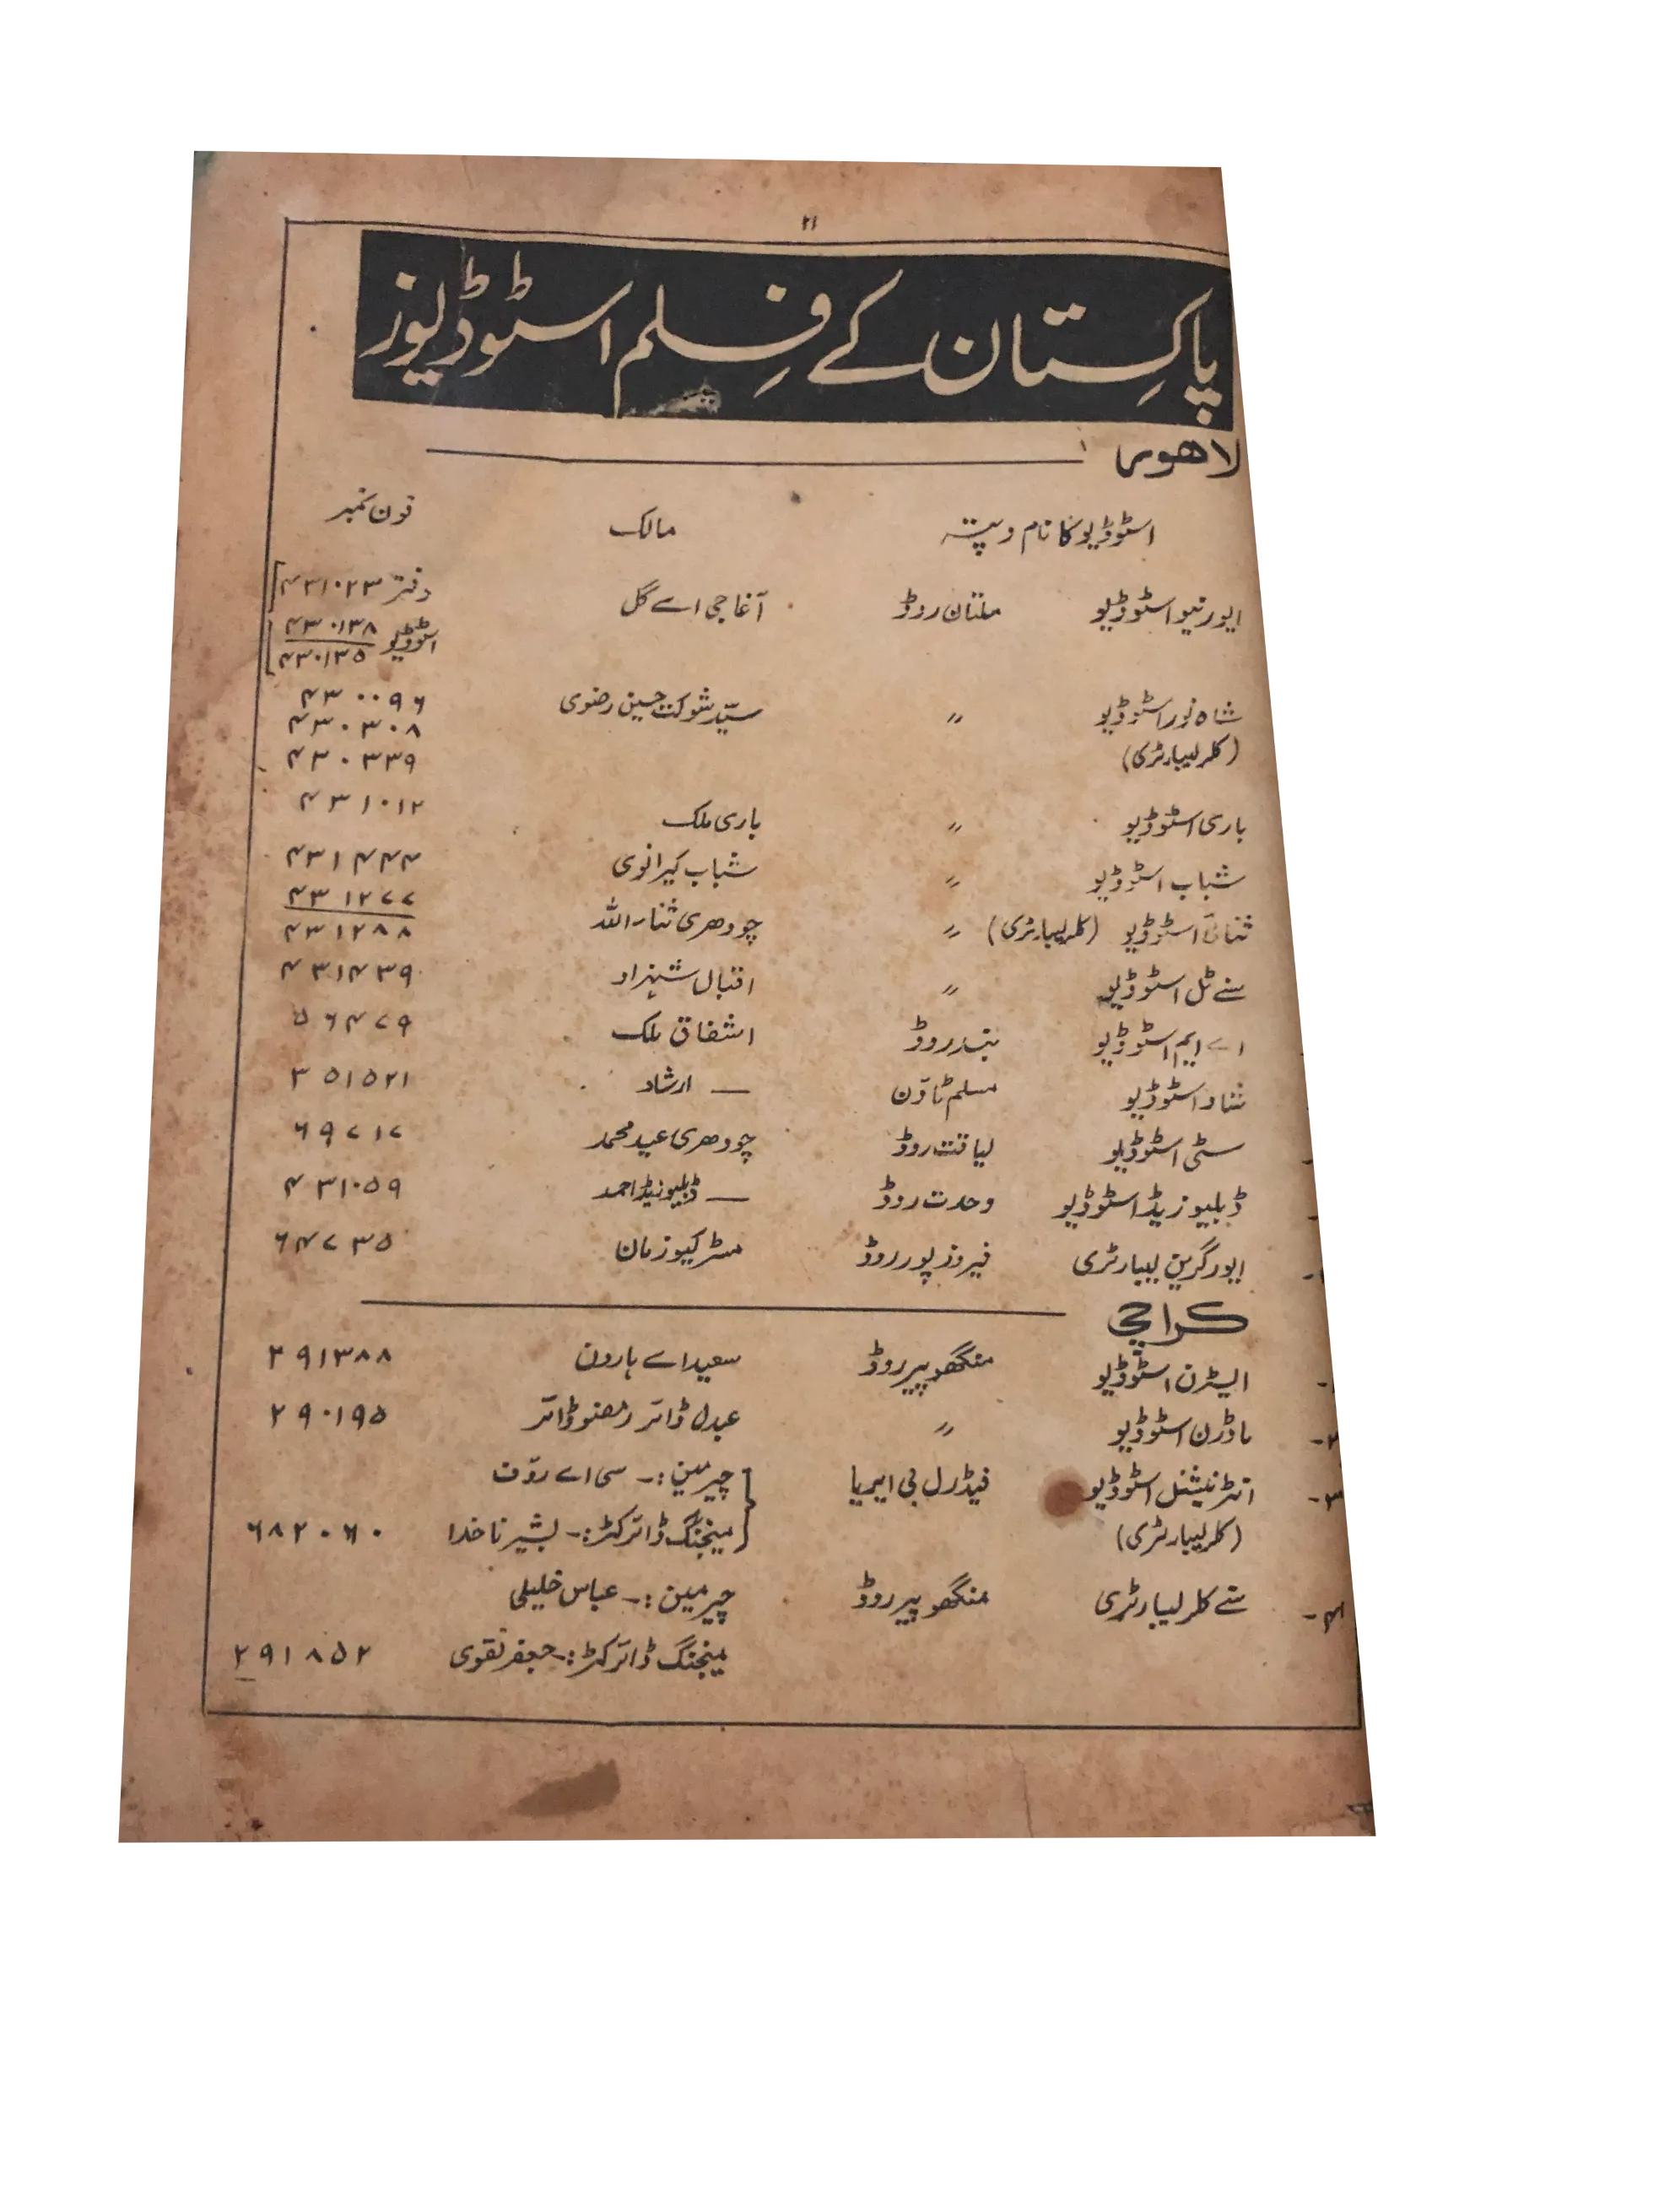 ۲۱
پاکِستان کے فِلم اسٹوڈیوز
لاھور
اسٹوڈیو کا نام و پتہ مالک فون نمبر
ایورنیو اسٹوڈیو ملتان روڈ آغا جی اے گل دفتر ۴۳۱۰۲۳
اسٹوڈیو ۴۳۰۱۳۸
۴۳۰۱۳۵
شاہ نور اسٹوڈیو 〃 سیّد شوکت حسین رضوی ۴۳۰۰۹۶
۴۳۰۳۰۸
(کلر لیبارٹری) ۴۳۰۳۳۹
باری اسٹوڈیو 〃 باری ملک ۴۳۱۰۱۲
شباب اسٹوڈیو 〃 شباب کیرانوی ۴۳۱۴۴۴
ثنائی اسٹوڈیو (کلر لیبارٹری) 〃 چودھری ثناء اللہ ۴۳۱۲۷۷
۴۳۱۲۸۸
سنے ٹل اسٹوڈیو 〃 اقبال شہزاد ۴۳۱۴۳۹
اے ایم اسٹوڈیو بند روڈ اشفاق ملک ۵۶۴۷۹
شاد اسٹوڈیو مسلم ٹاؤن — ارشاد ۳۵۱۵۲۱
سٹی اسٹوڈیو لیاقت روڈ چودھری عید محمد ۶۹۷۱۷
ڈبلیو زیڈ اسٹوڈیو وحدت روڈ — ڈبلیو زیڈ احمد ۴۳۱۰۵۹
ایورگرین لیبارٹری فیروز پور روڈ مسٹر کیو زمان ۶۴۷۳۵
کراچی
ایسٹرن اسٹوڈیو منگھو پیر روڈ سعید اے ہارون ۲۹۱۳۸۸
۲- ماڈرن اسٹوڈیو 〃 عبدل ڈائر رمضو ڈائر ۲۹۰۱۹۵
۳- انٹرنیشنل اسٹوڈیو فیڈرل بی ایریا چیرمین :- سی اے رؤف
(کلر لیبارٹری) مینجنگ ڈائرکٹر :- بشیر ناخدا ۶۸۲۰۶۰
۴- سنے کلر لیبارٹری منگھو پیر روڈ چیرمین :- عباس خلیلی
مینجنگ ڈائرکٹر :- جعفر نقوی ۲۹۱۸۵۲